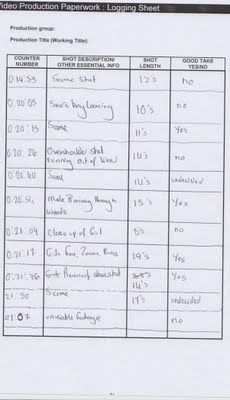 Video Production Paperwork : Logging Sheet
Production group:
Production Title (Working Title):
COUNTER NUMBER SHOT DESCRIPTION/ OTHER ESSENTIAL INFO SHOT LENGTH GOOD TAKE YES/NO
0:19:53 Same shot 12's no
0:20:05 boy leaving 10's no
0:20:15 Same 11's Yes
0:20:26 Overshoulder shot 14's no
running out of wood
0:20:40 Same 14's undecided
0:20:54 Male Running through 15's Yes
woods
0:21:09 Close up of Girl no
0:21:17 Girls face, Zooms, Runs 19's Yes
0:21:36 Girl Running 14's Yes
21:50 Same 17's undecided
21:07 unusable footage no